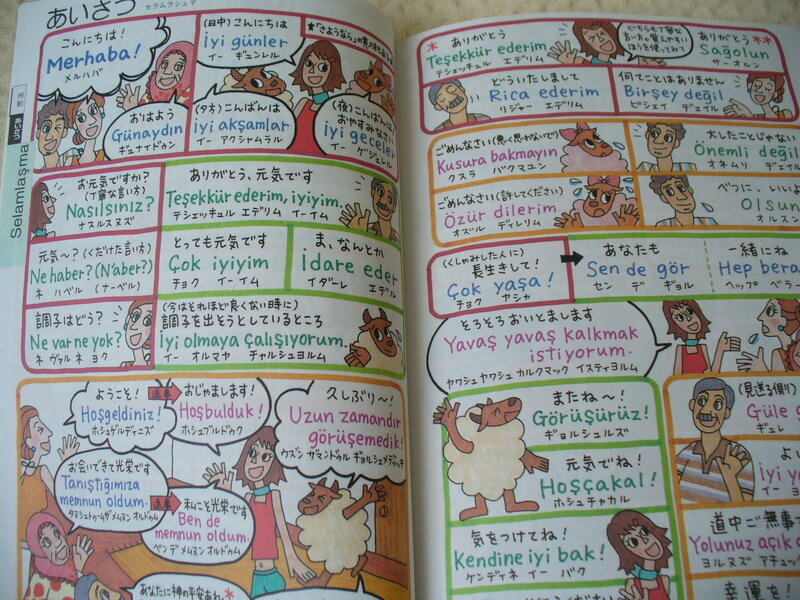 あいさつ
セラムラシュマ
移動
あいさつ
Selamlaşma
こんにちは!
Merhaba!
メルハバ
(日中)こんにちは
İyi günler
イー ギュンレル
おはよう
Günaydın
ギュナイドゥン
(夕方)こんばんは
İyi akşamlar
イー アクシャムラル
(夜)こんばんは
おやすみなさい
İyi geceler
イー ゲジェレル
お元気ですか?
(丁寧な言い方)
Nasılsınız?
ナスルスヌズ?
ありがとう、元気です
Teşekkür ederim, iyiyim.
テシェッキュル エデリム イーイム
元気〜?(くだけた言い方)
Ne haber? (N'aber?)
ネ ハベル (ナーベル)
とっても元気です
Çok iyiyim
チョク イーイム
ま、なんとか
İdare eder
イダーレ エデル
調子はどう?
Ne var ne yok?
ネ ヴァル ネ ヨク
(今はそれほど良くない時に)
調子を出そうとしているところ
İyi olmaya çalışıyorum.
イー オルマヤ チャルシュヨルム
ようこそ!
Hoşgeldiniz!
ホシュゲルディニズ
返事
おじゃまします!
Hoşbulduk!
ホシュブルドゥク
久しぶり〜!
Uzun zamandır
görüşemedik!
ウズン ザマンドゥル ギョルシェメディッキ
お会いできて光栄です
Tanıştığımıza
memnun oldum.
タヌシュトゥームザ メムヌン オルドゥム
返事
私こそ光栄です
Ben de
memnun oldum.
ベン デ メムヌン オルドゥム
あなたに神の平安あれ
ありがとう
Teşekkür ederim
テシェッキュル エデリム
どちらも丁寧な
言い方。覚えやすい
ほうを使ってみて
ありがとう
Sağolun
サーオルン
どういたしまして
Rica ederim
リジャー エデリム
何てことはありません
Birşey değil
ビシェイ デェイ
ごめんなさい(悪く思わないで)
Kusura bakmayın
クスラ バクマユン
大したことじゃない
Önemli değil
オネムリ デェイ
ごめんなさい(許してください)
Özür dilerim
オズル ディレリム
べつに、いいよ
Olsun
オルスン
(くしゃみした人に)
長生きして!
Çok yaşa!
チョク ヤシャ
あなたも
Sen de gör
セン デ ギョル
一緒にね
Hep bera
ヘップ ベラー
そろそろおいとまします
Yavaş yavaş kalkmak
istiyorum.
ヤワシュ ヤワシュ カルクマック イスティヨルム
またね〜!
Görüşürüz!
ギョルシュルズ
(見送る側)
Güle g
ギュレ
元気でね!
Hoşçakal!
ホシュチャカル
İyi y
イー ヨ
気をつけてね!
Kendine iyi bak!
ケンディネ イー バク
道中ご無事
Yolunuz açık o
ヨルヌズ アチュッ
幸運を!